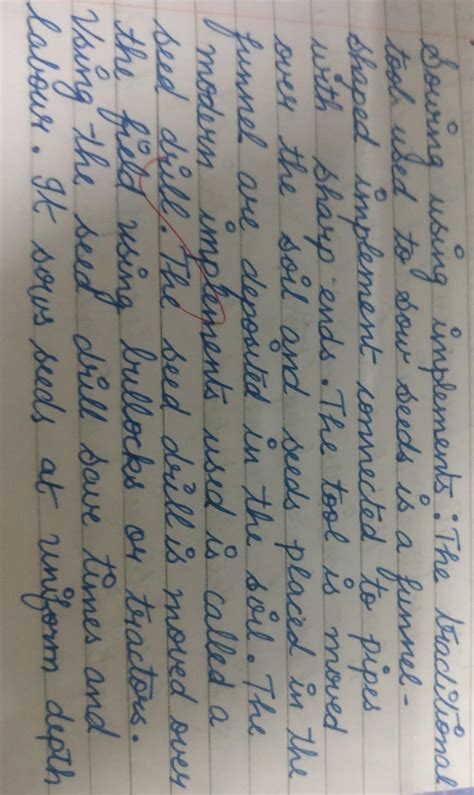 Sowing using implements : The traditional
tool used to sow seeds is a funnel-
shaped implement connected to pipes
with sharp ends. The tool is moved
over the soil and seeds placid in the
funnel are deposited in the soil. The
modern implements used is called a
seed drill. The seed drill is moved over
the field using bullocks or tractors.
Using the seed drill save times and
labour. It sows seeds at uniform depth